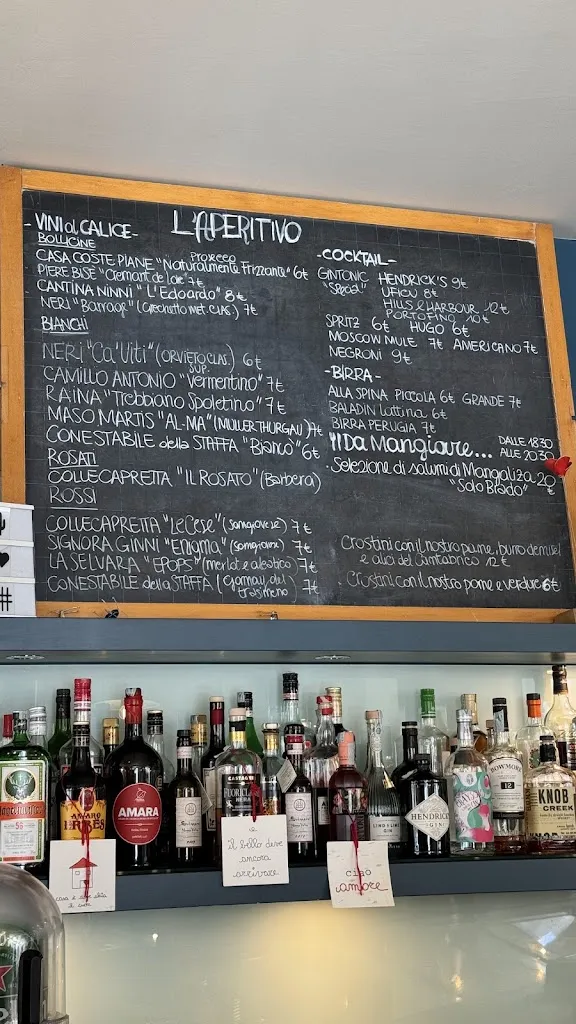 L'APERITIVO
-VINI al CALICE-
BOLLICINE
Prosecco
CASA COSTE PIANE "Naturalmente Frizzante" 6€
PIERE BISE "Cremant de Loire" 7€
CANTINA NINNI "L'Edoardo" 8€
NERI "Barrage" (Grechetto met. clas.) 7€
BIANCHI
NERI "Ca'Viti" (ORVIETO CLAS. SUP.) 6€
CAMILLO ANTONIO "Vermentino" 7€
RAINA "Trebbiano Spoletino" 7€
MASO MARTIS "AL-MA" (MULLER THURGAU) 7€
CONESTABILE della STAFFA "Bianco" 6€
ROSATI
COLLECAPRETTA "IL ROSATO" (Barbera)
ROSSI
COLLECAPRETTA "Le Cese" (sangiovese) 7€
SIGNORA GINNI "Enigma" (sangiovese) 7€
LA SELVARA "EPOPS" (merlot e aleatico) 7€
CONESTABILE della STAFFA (gamay del trasimeno) 7€
-COCKTAIL-
GINTONIC "Special" HENDRICK'S 9€
UFICU 8€
HILLS & HARBOUR 12€
PORTOFINO 10€
SPRITZ 6€ HUGO 6€
MOSCOW MULE 7€ AMERICANO 7€
NEGRONI 9€
-BIRRA-
ALLA SPINA PICCOLA 6€ GRANDE 7€
BALADIN lattina 6€
BIRRA PERUGIA 7€
Da Mangiare... DALLE 18.30 ALLE 20.30
·Selezione di salumi di Mangaliza 20€
"Salo Brado"
·Crostini con il nostro pane, burro demisel
e alici del Cantabrico 12€
·Crostini con il nostro pane e verdure 6€
#
56
AMARO
AMARA
HENDRICK'S
GIN
BOWMORE
12
KNOB
CREEK
il bello deve
ancora
arrivare
ciao
amore
casa è